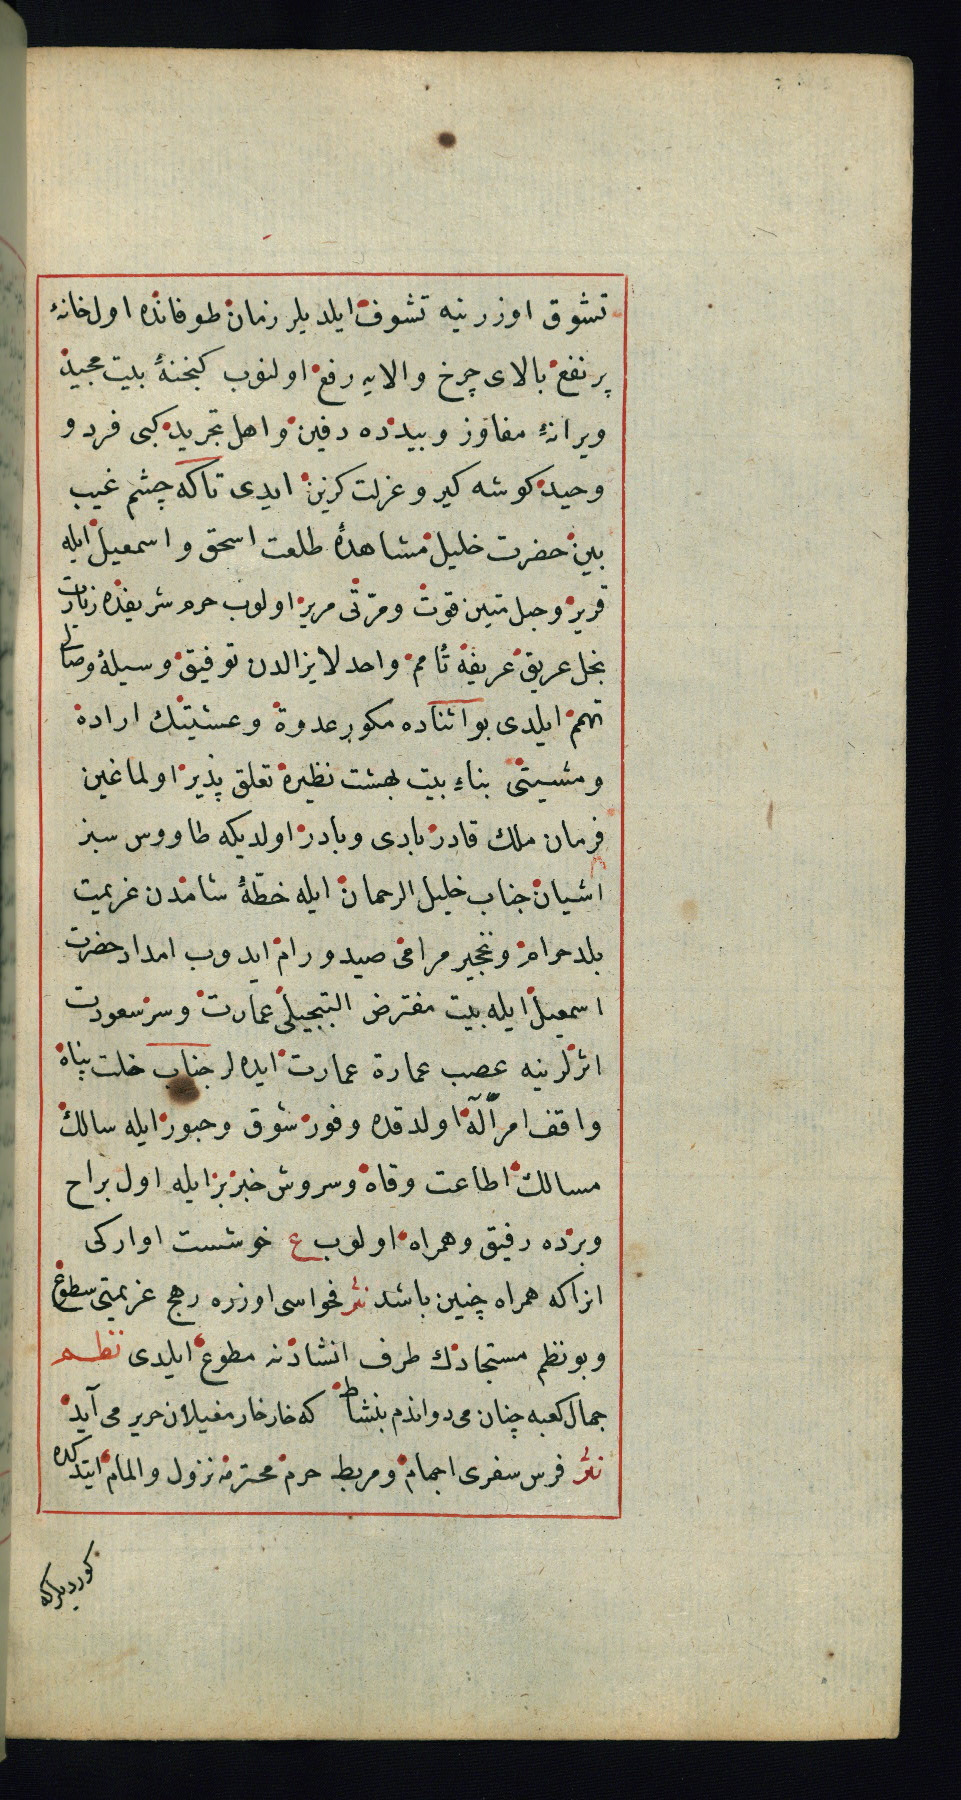 تشوق اوزرنیه تشوف ایلدیلر زمان طوفانده اول خانهٔ
پر نفع بالای چرخ والایه رفع اولنوب کنجنهٔ بیت مجید
ویرانهٔ مفاوز و بیدده دفین و اهل تجرید کبی فرد و
وحید کوشه کیر و عزلت کزین ایدی تاکه چشم غیب
بین حضرت خلیل مشاهدهٔ طلعت اسحق و اسمعیل ایله
قریر و حبل متین قوت و مرّتی مریر اولوب حرم شریفده زیارت
نجل عریق عریفه تُأمم واحد لایزالدن توفیق وسیلهٔ وصال
تهمم ایلدی بو اثناده مکور غدوة و عشیتک ارادهٔ
و مشیتی بناء بیت بهشت نظیره تعلق پذیر اولماغین
فرمان ملک قادر بادی و بادر اولدیکه طاووس سبز
اشیان جناب خلیل الرحمان ایله خطّهٔ شامدن عزیمت
بلد حرام و نخجیر مرامی صید و رام ایدوب امداد حضرت
اسمعیل ایله بیت مفترض التبجیلی عمارت و سر سعودت
اثرلرنیه عصب عمارة عمارت ایده لر جناب خلت پناه
واقف امر آله اولدقده وفور شوق و حبور ایله سالک
مسالک اطاعت وقاه و سروش خبزبز ایله اول براح
وبرده رفیق و همراه اولوب ع خوشست اوارکی
انراکه همراه چنین باشد نثر فحواسی اوزره رهج عزیمتی سطوع
وبو نظم مستجادک طرف انشادنه مطوع ایلدی نظم
جمال کعبه چنان می دواندم بنشاط که خارخار مغیلان حریر می آید
نثر فرس سفری اجمام و مربط حرم محترمه نزول والمام ایتدکده
کوردیلرکه